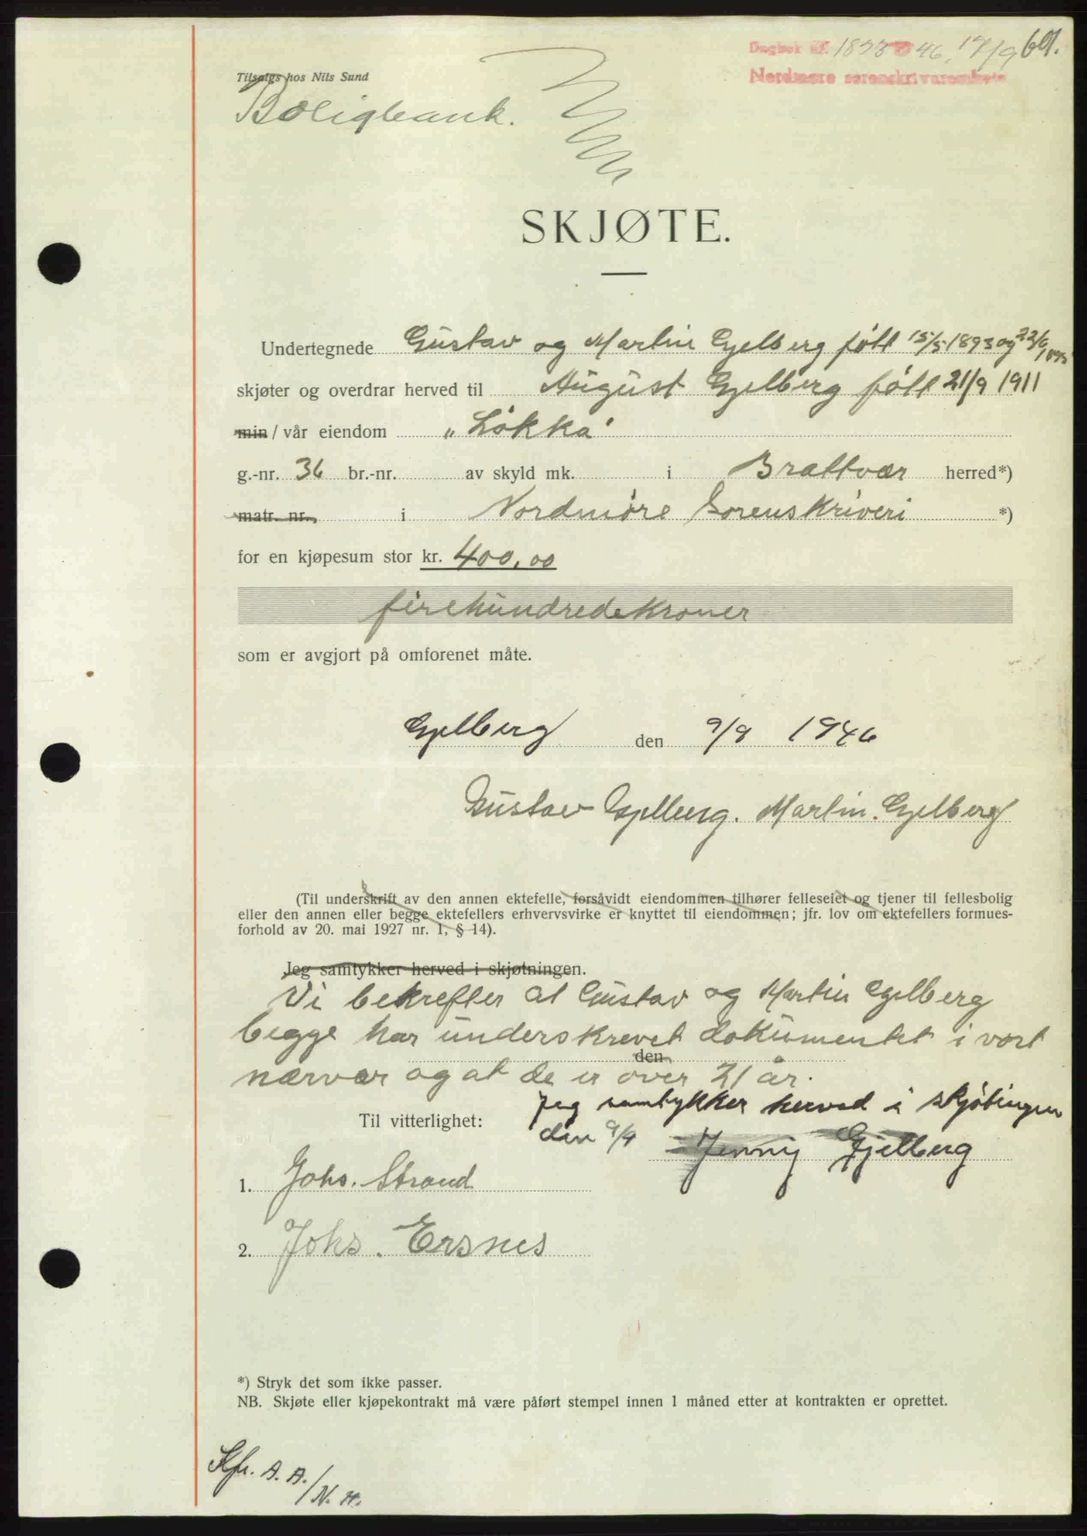 Dagbok nr. 1873 46, 17/9 601.
Nordmøre sorenskrivarembete
Tilsalgs hos Nils Sund
Boligbank.
SKJØTE.
Undertegnede Gustav og Martin Gjelberg født 15/5 1893 og 22/6 1895
skjøter og overdrar herved til August Gjelberg født 21/9 1911
min / vår eiendom „Løkka"
g.-nr. 36 br.-nr. av skyld mk. i Brattvær herred*)
matr. nr. i Nordmøre Sorenskriveri *)
for en kjøpesum stor kr. 400,00
firehundredekroner
som er avgjort på omforenet måte.
Gjelberg den 9/9 1946
Gustav Gjelberg. Martin. Gjelberg
(Til underskrift av den annen ektefelle, forsåvidt eiendommen tilhører felleseiet og tjener til fellesbolig
eller den annen eller begge ektefellers erhvervsvirke er knyttet til eiendommen; jfr. lov om ektefellers formues-
forhold av 20. mai 1927 nr. 1, § 14).
Jeg samtykker herved i skjøtningen.
Vi bekrefter at Gustav og Martin Gjelberg
begge har underskrevet dokumentet i vort
den
nærvær og at de er over 21 år.
Jeg samtykker herved i skjøtingen
Til vitterlighet:
den 9/9 Jenny Gjelberg
1. Johs. Strand
2. Johs. Ersnes
*) Stryk det som ikke passer.
NB. Skjøte eller kjøpekontrakt må være påført stempel innen 1 måned etter at kontrakten er oprettet.
Kfr. A. A./N. H.